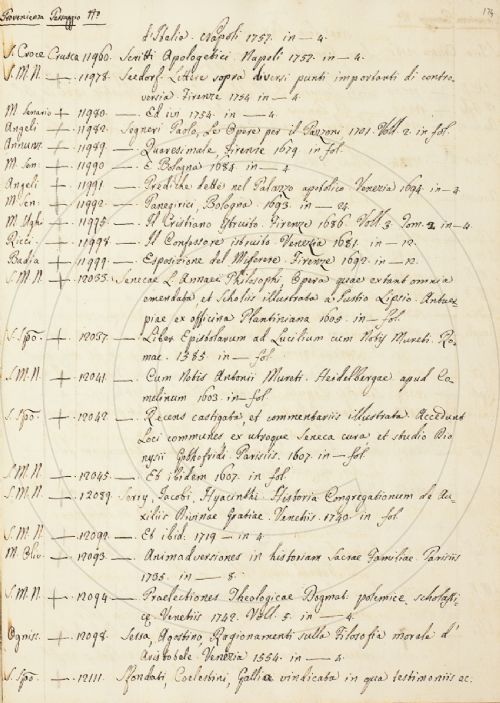 Provenienza Passaggio N.º 174
d'Italia. Napoli 1757. in — 4.
S. Croce Crusca 11960. Scritti Apologetici. Napoli 1757. in — 4.
S. M. N. + 11978. Seedorf. Lettere sopra diversi punti importanti di contro-
versia. Firenze 1754 in — 4.
M. Senario + 11980. — Ed ivi 1754. in — 4.
Angeli + 11982. Segneri Paolo, Le Opere per il 1701. Voll. 2. in fol.
Annunz. + 11989. — Quaresimale, Firenze 1679. in fol.
M. Sen. + 11990 — E Bologna 1684. in — 4.
Angeli + 11991 — Prediche dette nel Palazzo apostolico Venezia 1694. in — 4.
M. Sen. + 11992. — Panegirici, Bologna 1693. in — 24.
M. Ughi + 11995. — Il Cristiano Istruito. Firenze 1686. Voll. 3. Tom. 2. in — 4.
Ricci + 11998. — Il Confessore istruito. Venezia 1681. in — 12.
Badia + 11999. — Esposizione del Miserere. Firenze 1692. in — 12.
S. M. N. + 12035. Senecae L. Annaei Philosophi, Opera quae extant omnia
emendata, et Scholiis illustrata a Justo Lipsio. Antuer-
piae ex officina Plantiniana 1605. in — fol.
S. Spo. + 12037. — Liber Epistolarum ad Lucilium cum Notis Mureti. Ro-
mae. 1585. in — fol.
S. M. N. + 12041. — Cum Notis Antonii Mureti. Heidelbergae apud Co-
melinum 1603. in — fol.
S. Spo. + 12042. — Recens castigata, et commentariis illustrata. Accedunt
Loci communes ex utroque Seneca cura, et studio Dio-
nysii Gothofridi. Parisiis. 1607. in — fol.
S. M. N. + 12045. — Et ibidem 1607. in fol.
S. M. N. + 12089. Serry, Jacobi, Hyacinthi. Historia Congregationum de Au-
xiliis Divinae Gratiae. Venetiis. 1740. in fol.
S. M. N. — 12092. — Et ibid. 1719 — in 4.
M. 12093. — Animadversiones in historiam Sacrae Familiae. Parisiis
1735. in — 8.
S. M. N. + 12094. — Praelectiones Theologicae Dogmat. polemice, scholasti-
cę. Venetiis 1742. Voll. 5. in — 4.
Ogniss. + 12098. Sessa, Agostino, Ragionamenti sulla Filosofia morale d'
Aristotele. Venezia 1554. in — 4.
S. Spo. + 12111. Sfondati, Coelestini, Gallia vindicata in qua testimoniis ec: